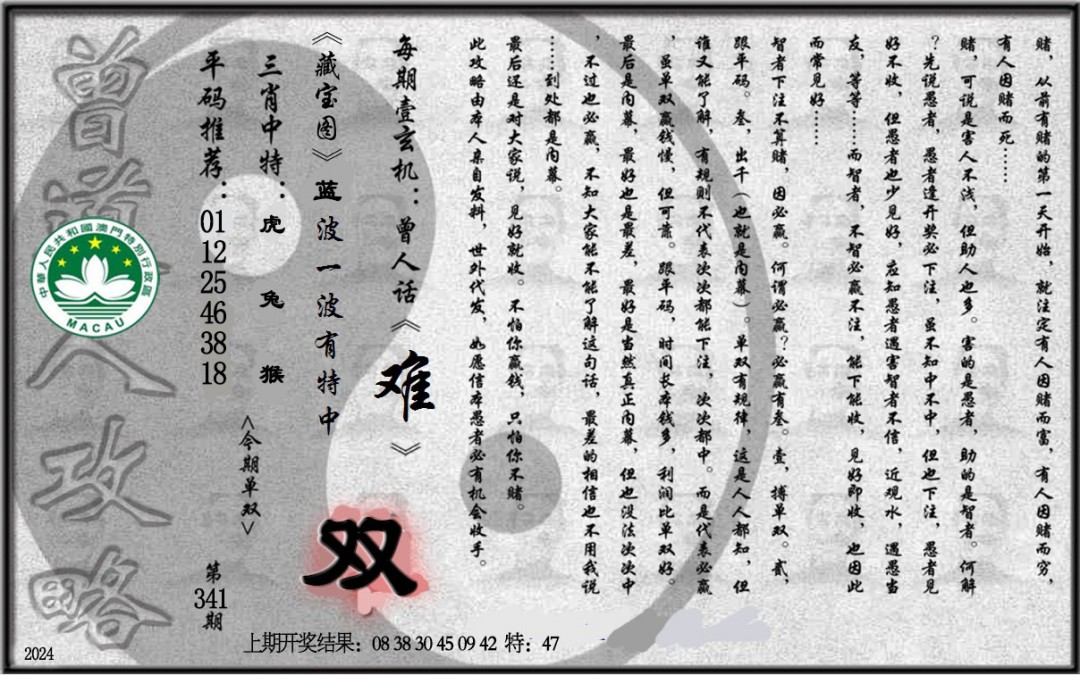 赌，从前有赌的第一天开始，就注定有人因赌而富，有人因赌而穷，
有人因赌而死……
赌，可说是害人不浅，但助人也多。害的是愚者，助的是智者。何解
？先说愚者，愚者逢开奖必下注，虽不知中不中，但也下注，愚者见
好不收，但愚者也少见好，应知愚者遇害智者不信，近观水，遇愚当
友，等等……而智者，不智必赢不注，能下能收，见好即收，也因此
而常见好……
智者下注不算赌，因必赢。何谓必赢？必赢有叁。壹，搏单双。贰，
跟平码。叁，出千（也就是内幕）。单双有规律，这是人人都知，但
谁又能了解，有规则不代表次次都能下注，次次都中。而是代表必赢
，虽单双赢钱慢，但可靠。跟平码，时间长本钱多，利润比单双好。
最后是内幕，最好也是最差，最好是当然真正内幕，但也没法次次中
，不过也必赢，不知大家能不能了解这句话，最差的相信也不用我说
……到处都是内幕。
最后还是对大家说，见好就收。不怕你赢钱，只怕你不赌。
此攻略由本人亲自发料，世外代发，如愿信本愚者必有机会收手。
每期壹玄机：曾人话《难》
《藏宝图》蓝波一波有特中
三肖中特：虎 兔 猴
平码推荐：01 12 25 46 38 18
<今期单双>
双
第341期
曾道人攻略
中華人民共和國澳門特別行政區
MACAU
上期开奖结果：08 38 30 45 09 42 特：47
2024